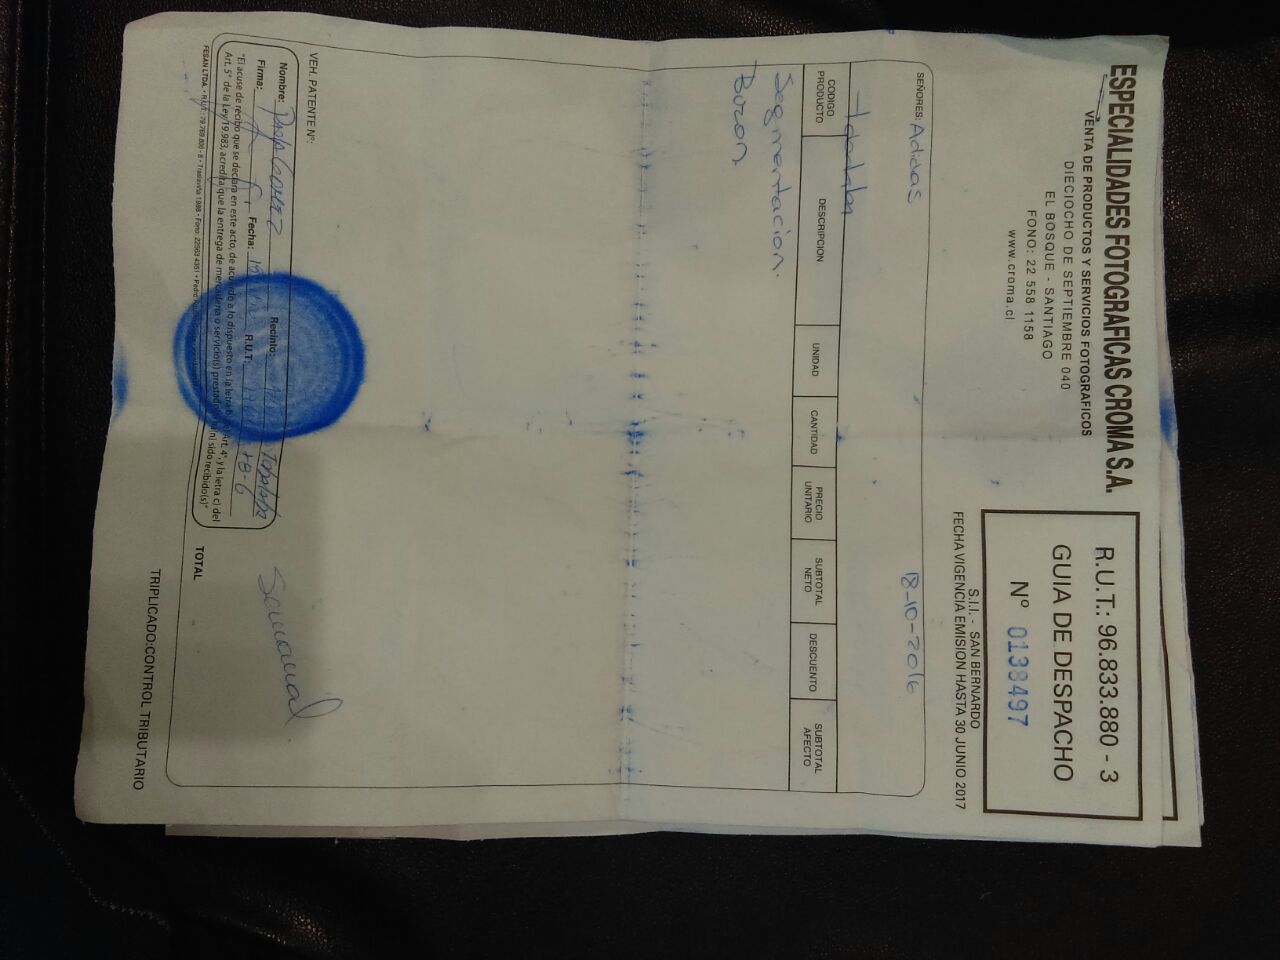 ESPECIALIDADES FOTOGRAFICAS CROMA S.A.
VENTA DE PRODUCTOS Y SERVICIOS FOTOGRAFICOS
DIECIOCHO DE SEPTIEMBRE 040
EL BOSQUE - SANTIAGO
FONO: 22 558 1158
www.croma.cl
R.U.T.: 96.833.880 - 3
GUIA DE DESPACHO
Nº 0138497
S.I.I. - SAN BERNARDO
FECHA VIGENCIA EMISION HASTA 30 JUNIO 2017
SEÑORES: Adidas 18-10-2016
Tobalaba
CODIGO PRODUCTO DESCRIPCION UNIDAD CANTIDAD PRECIO UNITARIO SUBTOTAL NETO DESCUENTO SUBTOTAL AFECTO
Segmentacion.
Buzon
VEH. PATENTE Nº:
Semanal
Nombre: Paola GOMEZ Recinto: Tobalaba
Firma: Fecha: R.U.T.: 78-6
"El acuse de recibo que se declara en este acto, de acuerdo a lo dispuesto en la letra b) del Art. 4°, y la letra c) del
Art. 5° de la Ley 19.983, acredita que la entrega de mercaderia o servicio(s) prestado(s) ha(n) sido recibido(s)"
FESAN LTDA. • R.U.T.: 79.769.800 - 8 • Traslaviña 1988 • Fono: 22563 4351 • Pedro
TOTAL
TRIPLICADO:CONTROL TRIBUTARIO